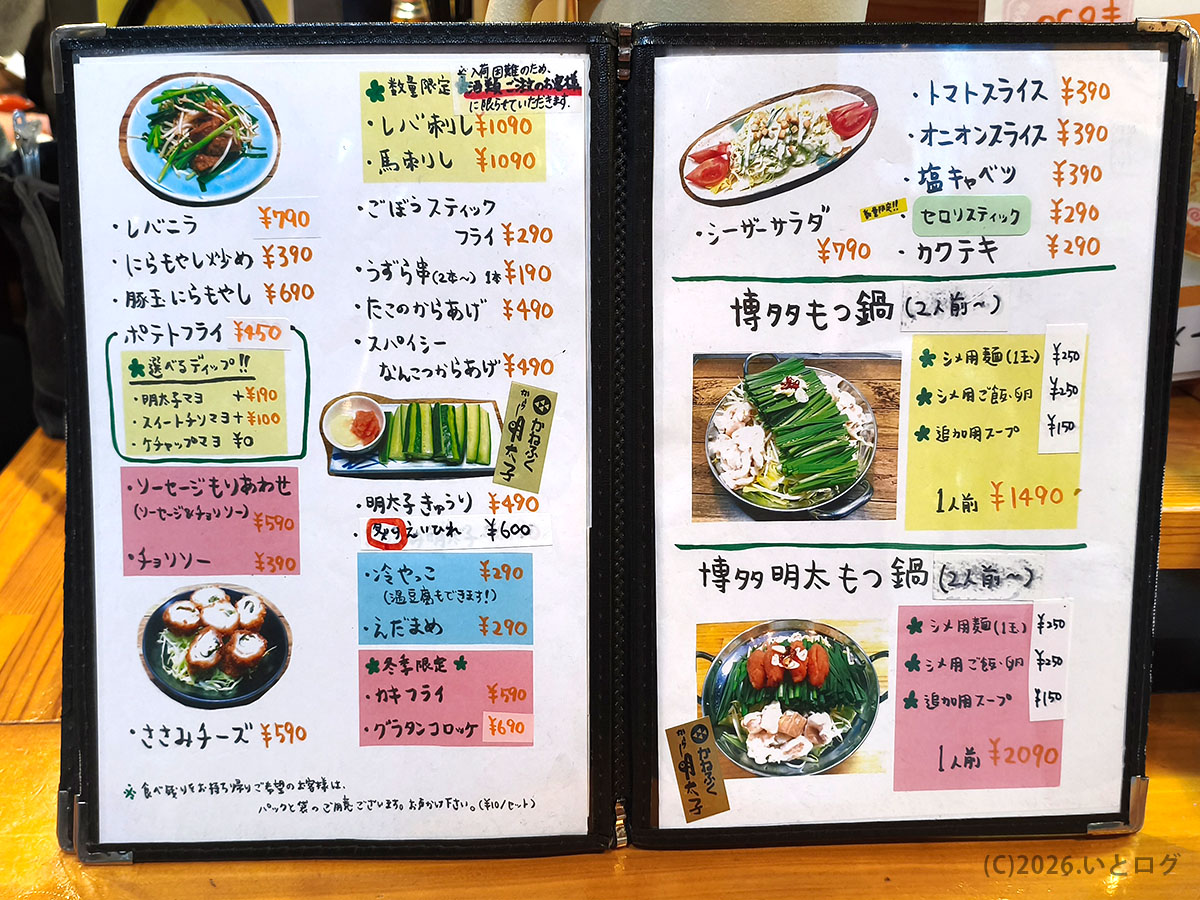 ・レバニラ ¥790
・にらもやし炒め ¥390
・豚玉にらもやし ¥690
ポテトフライ ¥450
選べるディップ!!
・明太子マヨ +¥190
・スイートチリマヨ+¥100
・ケチャップマヨ ¥0
・ソーセージもりあわせ
(ソーセージ&チョリソー)
¥590
・チョリソー ¥390
・ささみチーズ ¥590
数量限定
※入荷困難のため、
酒類ご注文のお客様
に限らせていただきます。
・レバ刺し ¥1090
・馬刺し ¥1090
・ごぼうスティック
フライ ¥290
・うずら串(2本~) 1本¥190
・たこのからあげ ¥490
・スパイシー
なんこつからあげ ¥490
かねふく
からし明太子
・明太子きゅうり ¥490
・炙りえいひれ ¥600
・冷やっこ ¥290
(温豆腐もできます!)
・えだまめ ¥290
冬季限定
・カキフライ ¥590
・グラタンコロッケ ¥690
※食べ残りをお持ち帰りご希望のお客様は、
パックと袋のご用意ございます。お声かけ下さい。(¥10/セット)
・シーザーサラダ
¥790
・トマトスライス ¥390
・オニオンスライス ¥390
・塩キャベツ ¥390
数量限定!!
・セロリスティック ¥290
・カクテキ ¥290
博多もつ鍋(2人前~)
シメ用麺(1玉) ¥250
シメ用ご飯・卵 ¥250
追加用スープ ¥150
1人前 ¥1490
博多明太もつ鍋(2人前~)
シメ用麺(1玉) ¥250
シメ用ご飯・卵 ¥250
追加用スープ ¥150
1人前 ¥2090
かねふく
からし明太子
(C)2026.いとログ